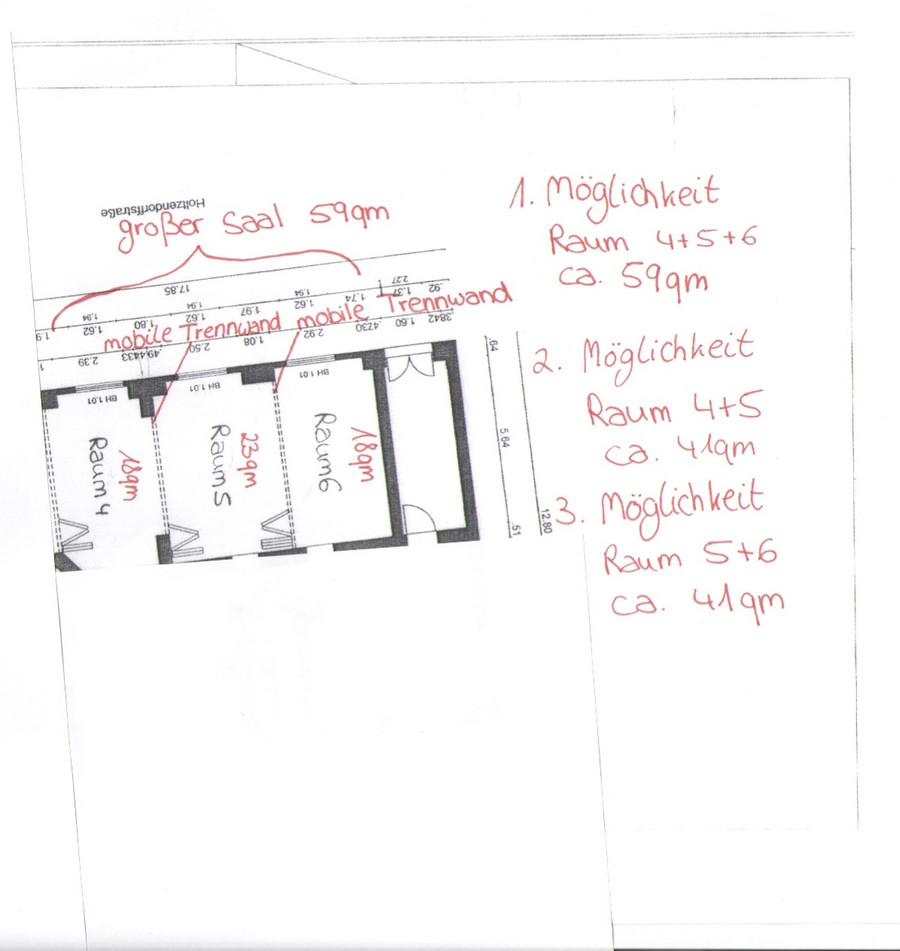 Holtzendorffstraße
großer Saal 59qm
17.85
2.27
1.94
1.94
1.94
1.74
1.37
.92
1.62
1.80
1.62
1.97
1.62
mobile Trennwand
mobile Trennwand
2.39
.494433
2.50
1.08
2.92
.4730
1.60
.3842
BH 1.01
BH 1.01
BH 1.01
Raum 4
18qm
Raum 5
23qm
Raum 6
18qm
.64
5.64
.51
12.80
1. Möglichkeit
Raum 4+5+6
ca. 59qm
2. Möglichkeit
Raum 4+5
ca. 41qm
3. Möglichkeit
Raum 5+6
ca. 41qm